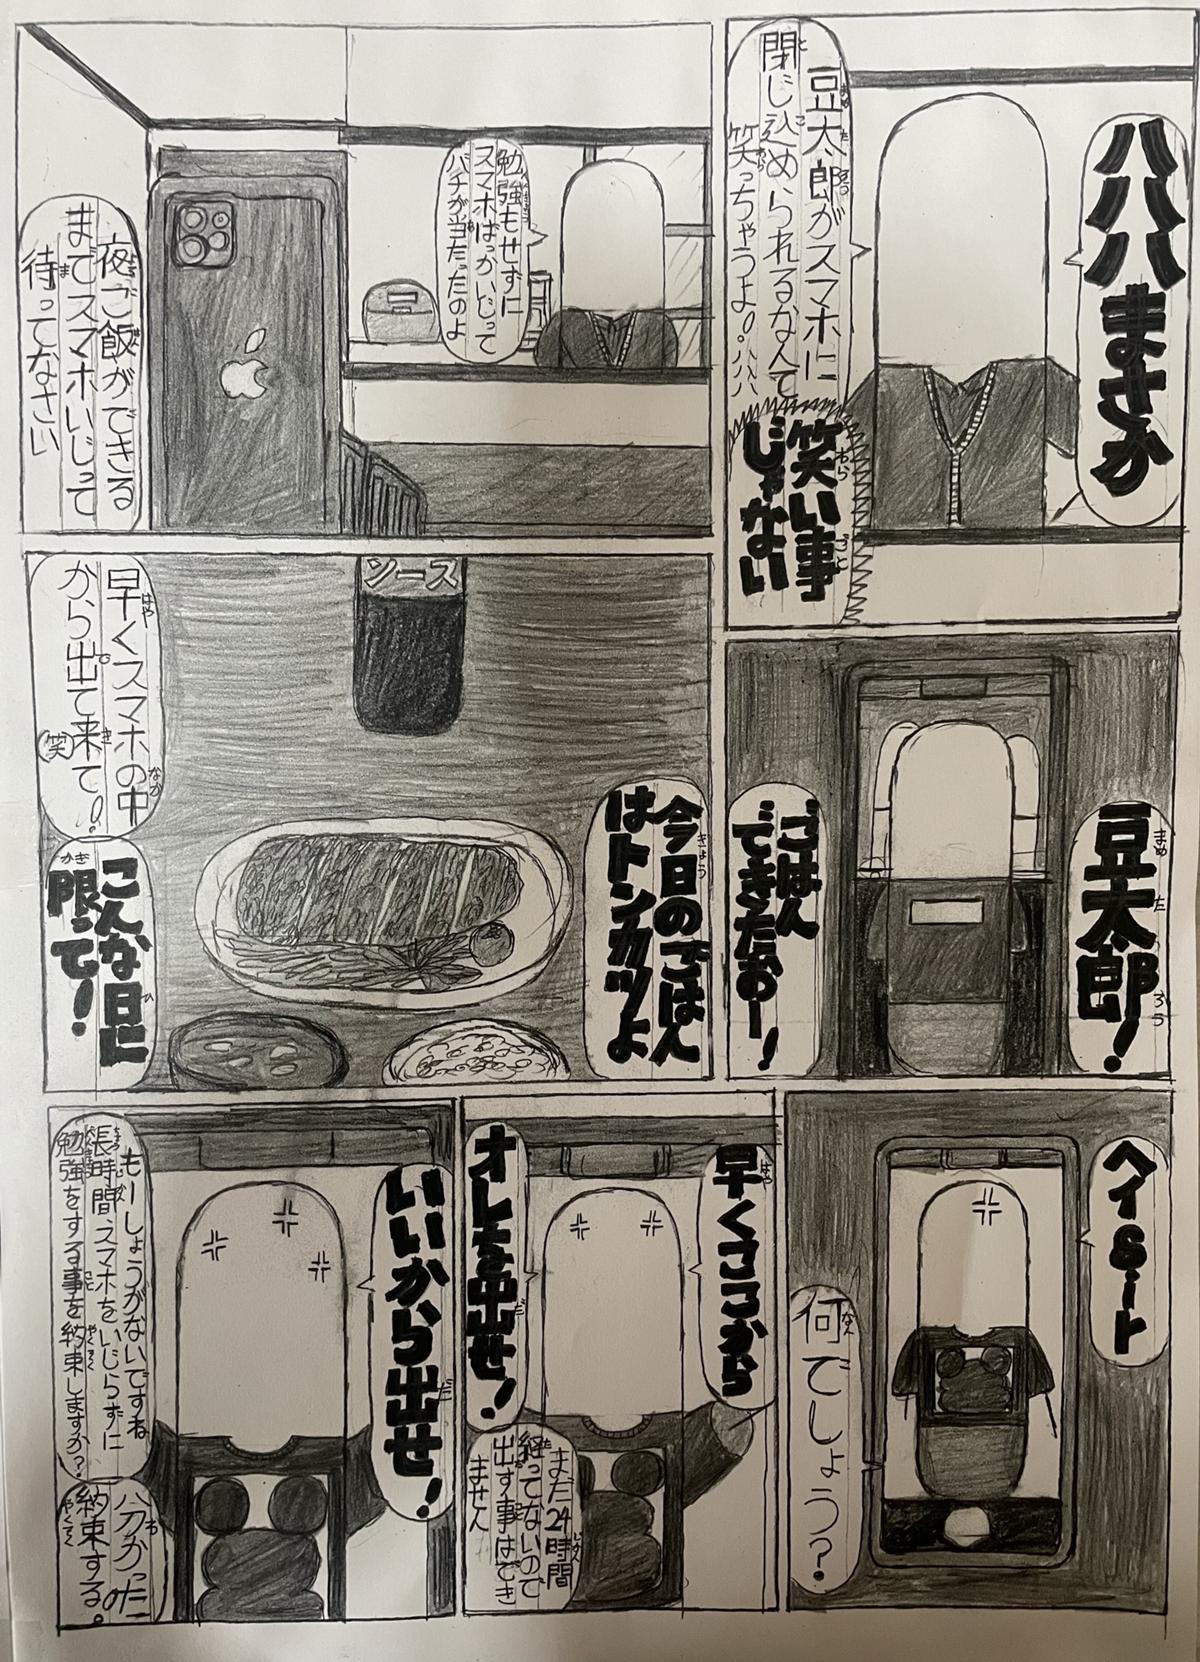 ハハハまさか
豆太郎がスマホに
閉じ込められるなんて
笑っちゃうよ。ハハハ
笑い事
じゃない
勉強もせずに
スマホばっかいじって
バチが当たったのよ
夜ご飯ができる
までスマホいじって
待ってなさい
豆太郎!
ごはん
できたわよー!
ソース
今日のごはん
はトンカツよ
早くスマホの中
から出て来て!
笑
こんな日に
限って!
ヘイSiri
何でしょう?
早くここから
オレを出せ!
まだ24時間
経ってないので
出す事はでき
ません
いいから出せ!
もーしょうがないですね
長時間スマホをいじらずに
勉強をする事を約束しますか?
分かった
約束する。